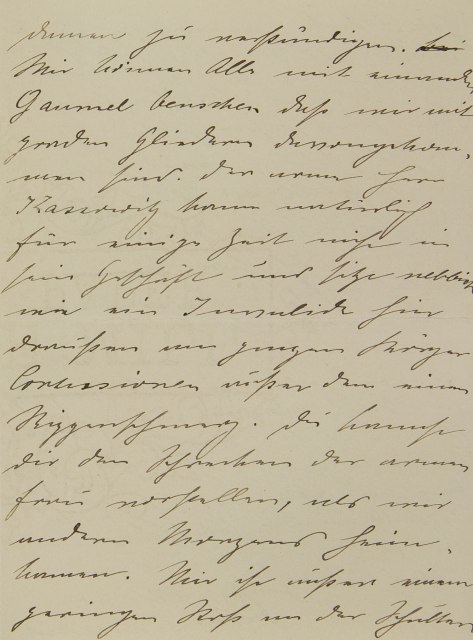 denen zu verständigen.
Wir können Alle mit einander
Gaumel benschen daß wir mit
graden Gliedern davongekom-
men sind. Der arme Herr
Kassowitz kann natürlich
für einige Zeit nicht in
sein Geschäft und sitzt nebbich
wie ein Invalide hier
draußen am ganzen Körper
Contusionen außer dem einen
Rippenschmerz. Du kannst
dir den Schrecken der armen
Frau vorstellen, als wir
andern Morgens heim-
kamen. Mir ist außer einem
geringen Stoß an der Schulter